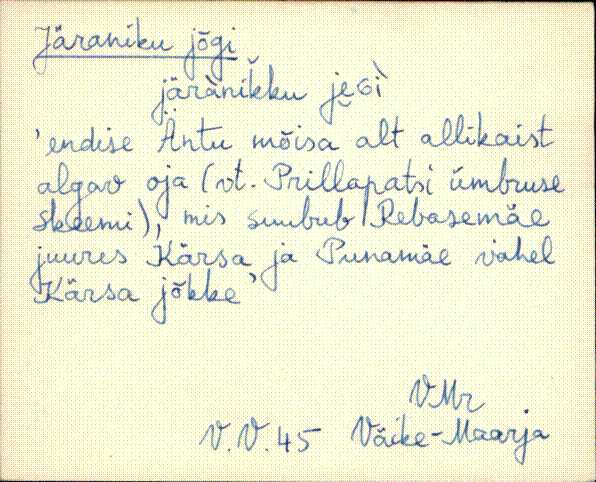 Järaniku jõgi
järànikku je̮Gì
'endise Äntu mõisa alt allikaist
algav oja (vt. Prillapatsi ümbruse
skeemi), mis suubub Rebasemäe
juures Kärsa ja Punamäe vahel
Kärsa jõkke'
VMr
V.V.45 Väike-Maarja